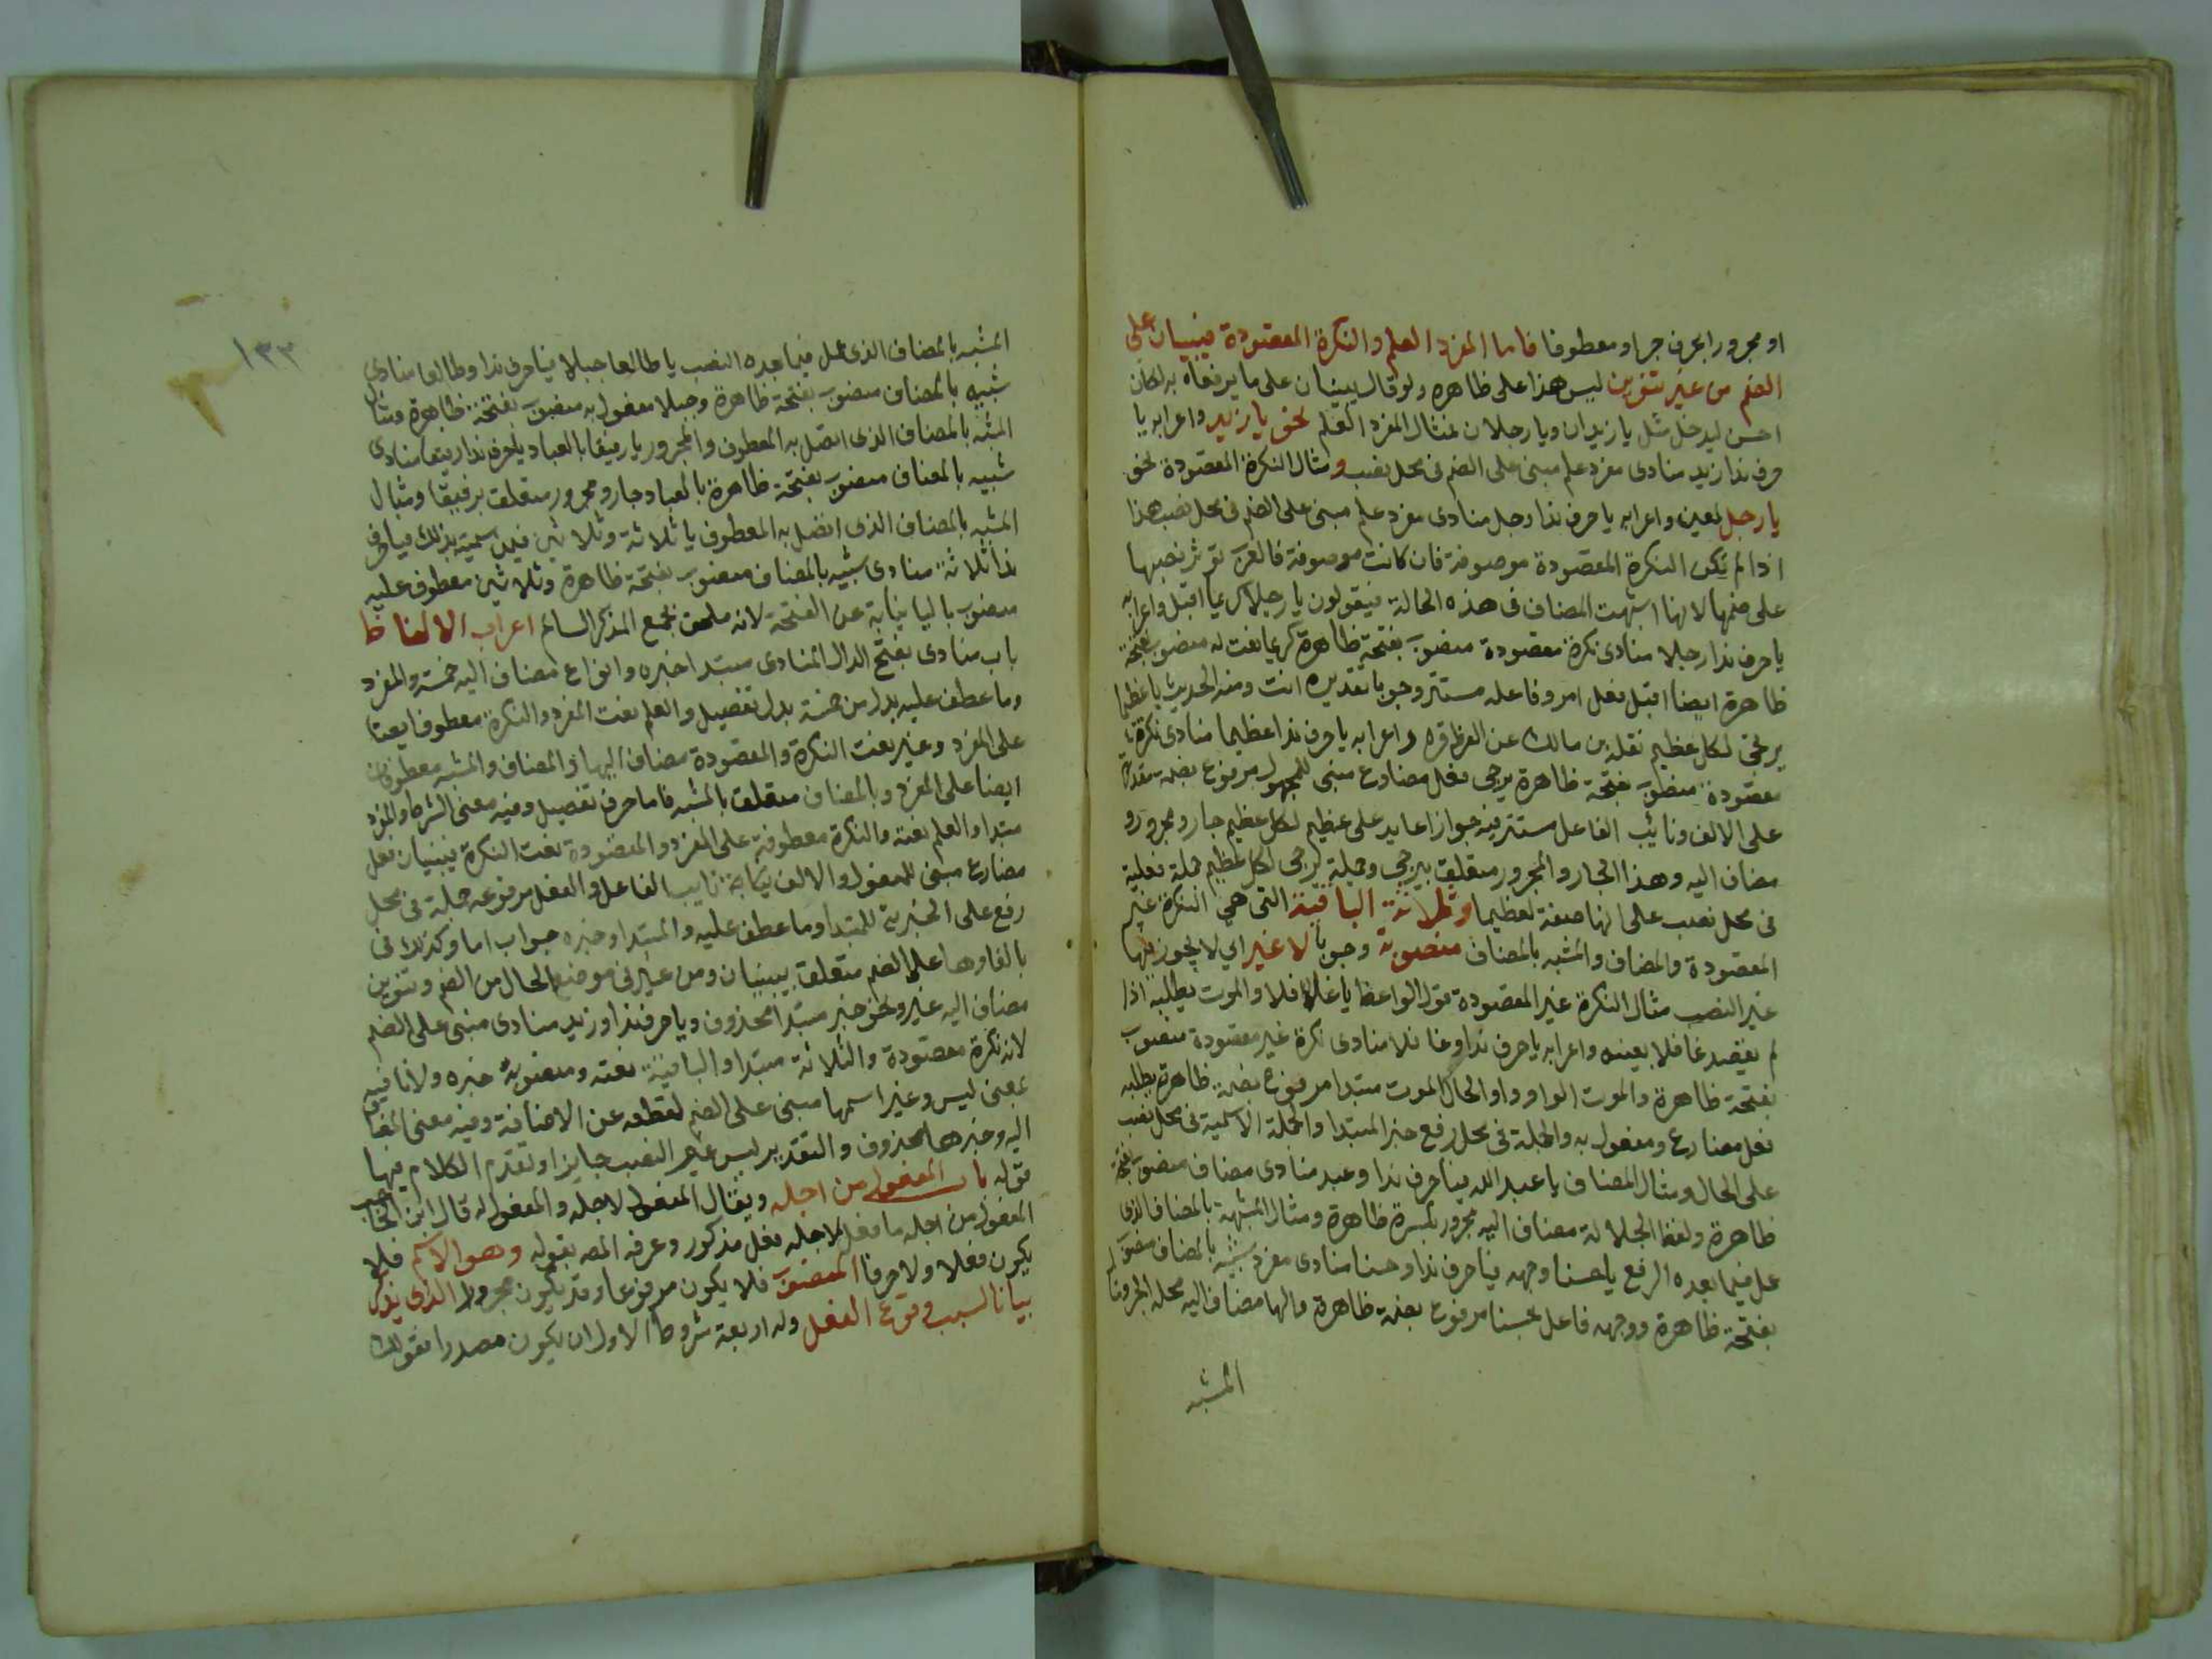 او مجرورا بحرف جر او معطوفا فاما المفرد العلم والنكرة المقصودة فيبنيان على
الضم من غير تنوين ليس هذا على ظاهره ولو قال يبنيان على ما يرفعان به لكان
احسن ليدخل مثل يا زيدان ويا رجلان فمثال المفرد العلم نحو يا زيد واعرابه يا
حرف ندا زيد منادى مفرد علم مبنى على الضم فى محل نصب ومثال النكرة المقصودة نحو
يا رجل لمعين واعرابه يا حرف ندا رجل منادى مفرد علم مبنى على الضم فى محل نصب هذا
اذا لم تكن النكرة المقصودة موصوفة فان كانت موصوفة فالعرب تؤثر نصبها
على ضمها لانها اشبهت المضاف فى هذه الحالة فيقولون يا رجلا كريما اقبل واعرابه
يا حرف ندا رجلا منادى نكرة مقصودة منصوب بفتحة ظاهرة كريما نعت له منصوب بفتحة
ظاهرة ايضا اقبل فعل امر وفاعله مستتر وجوبا تقديره انت ومنه الحديث يا عظيما
يرجى لكل عظيم نقله بن مالك عن الفراء واعرابه يا حرف ندا عظيما منادى نكرة
مقصودة منصوب بفتحة ظاهرة يرجى فعل مضارع مبنى للمجهول مرفوع بضمة مقدرة
على الالف ونائب الفاعل مستتر فيه جوازا عايد على عظيم لكل عظيم جار ومجرور و
مضاف اليه وهذا الجار والمجرور متعلق بيرجى وجملة يرجى لكل عظيم جملة فعلية
فى محل نصب على انها صفة لعظيما وثلاثة الباقية التى هى النكرة غير
المقصودة والمضاف والمشبه بالمضاف منصوبة وجوبا لا غير اي لا يجوز فيها
غير النصب مثال النكرة غير المقصودة قول الواعظ يا غافلا والموت يطلبه اذا
لم يقصد غافلا بعينه واعرابه يا حرف ندا وغافلا منادى نكرة غير مقصودة منصوب
بفتحة ظاهرة والموت الواو واو الحال الموت مبتدا مرفوع بضمة ظاهرة يطلبه
فعل مضارع ومفعول به والجملة فى محل رفع خبر المبتدا والجملة الاسمية فى محل نصب
على الحال ومثال المضاف يا عبد الله فيا حرف ندا وعبد منادى مضاف منصوب بفتحة
ظاهرة ولفظ الجلالة مضاف اليه مجرور بكسرة ظاهرة ومثال المشبه بالمضاف الذى
عمل فيما بعده الرفع يا حسنا وجهه فيا حرف ندا وحسنا منادى مفرد شبيه بالمضاف منصوب
بفتحة ظاهرة ووجهه فاعل بحسنا مرفوع بضمة ظاهرة والها مضاف اليه محله الجر ومثال
المشبه
١٣٣
المشبه بالمضاف الذى عمل فيما بعده النصب يا طالعا جبلا فيا حرف ندا وطالعا منادى
شبيه بالمضاف منصوب بفتحة ظاهرة وجبلا مفعول به منصوب بفتحة ظاهرة ومثال
المشبه بالمضاف الذى اتصل به المعطوف والمجرور يا رفيقا بالعباد يا حرف ندا رفيقا منادى
شبيه بالمضاف منصوب بفتحة ظاهرة بالعباد جار ومجرور متعلق برفيقا ومثال
المشبه بالمضاف الذى اتصل به المعطوف يا ثلاثة وثلاثين فيمن سميته بذلك فيا حرف
ندا ثلاثة منادى شبيه بالمضاف منصوب بفتحة ظاهرة وثلاثين معطوف عليه
منصوب باليا نيابة عن الفتحة لانه ملحق بجمع المذكر السالم اعراب الالفاظ
باب منادى بفتح الدال المنادى مبتدا خبره وانواع مضاف اليه خمسة والمفرد
وما عطف عليه بدل من خمسة بدل تفصيل والعلم نعت المفرد والنكرة معطوف ايضا
على المفرد وغير نعت النكرة والمقصودة مضاف اليها والمضاف والمشبه معطوفان
ايضا على المفرد وبالمضاف متعلق بالمشبه فاما حرف تفصيل وفيه معنى الشرط والمفرد
مبتدا والعلم نعته والنكرة معطوفة على المفرد والمقصودة نعت النكرة يبنيان فعل
مضارع مبنى للمفعول والالف نيابة نايب الفاعل والفعل مرفوعه جملة فى محل
رفع على الخبرية للمبتدا وما عطف عليه والمبتدا وخبره جواب اما وكذلك فى
بالفا وها على الضم متعلق بيبنيان ومن غير فى موضع الحال من الضم وتنوين
مضاف اليه غير ونحو خبر مبتدا محذوف ويا حرف ندا وزيد منادى مبنى على الضم
لانه نكرة مقصودة والثلاثة مبتدا والباقية نعته ومنصوبة خبره ولا نافية
بمعنى ليس وغير اسمها مبنى على الضم لقطعه عن الاضافة وفيه معنى المضاف
اليه وخبرها محذوف والتقدير ليس غير النصب جايزا وتقدم الكلام فيها
قوله باب المفعول من اجله ويقال المفعول لاجله والمفعول له قال ابن الحاجب
المفعول من اجله ما فعل لاجله فعل مذكور وعرفه المصـ بقوله وهو الاسم فلا
يكون فعلا ولا حرفا المنصوب فلا يكون مرفوعا وقد يكون مجرورا الذى يذكر
بيانا لسبب وقوع الفعل وله اربعة شروط الاول ان يكون مصدرا تقولك